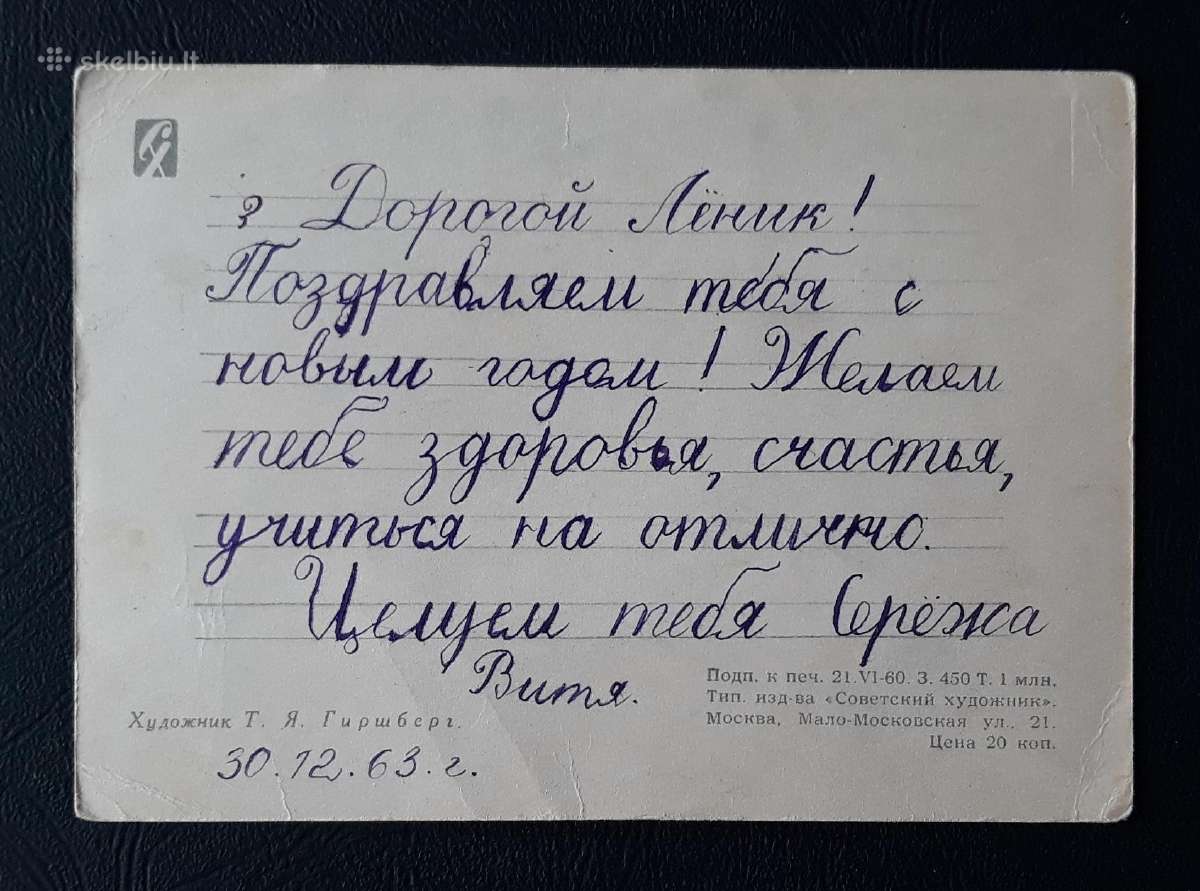 skelbiu.lt
СХ
з Дорогой Лёник!
Поздравляем тебя с
новым годом! Желаем
тебе здоровья, счастья,
учиться на отлично.
Целуем тебя Серёжа
Витя.
Подп. к печ. 21.VI-60. З. 450 Т. 1 млн.
Тип. изд-ва «Советский художник».
Москва, Мало-Московская ул., 21.
Цена 20 коп.
Художник Т. Я. Гиршберг.
30.12.63.г.